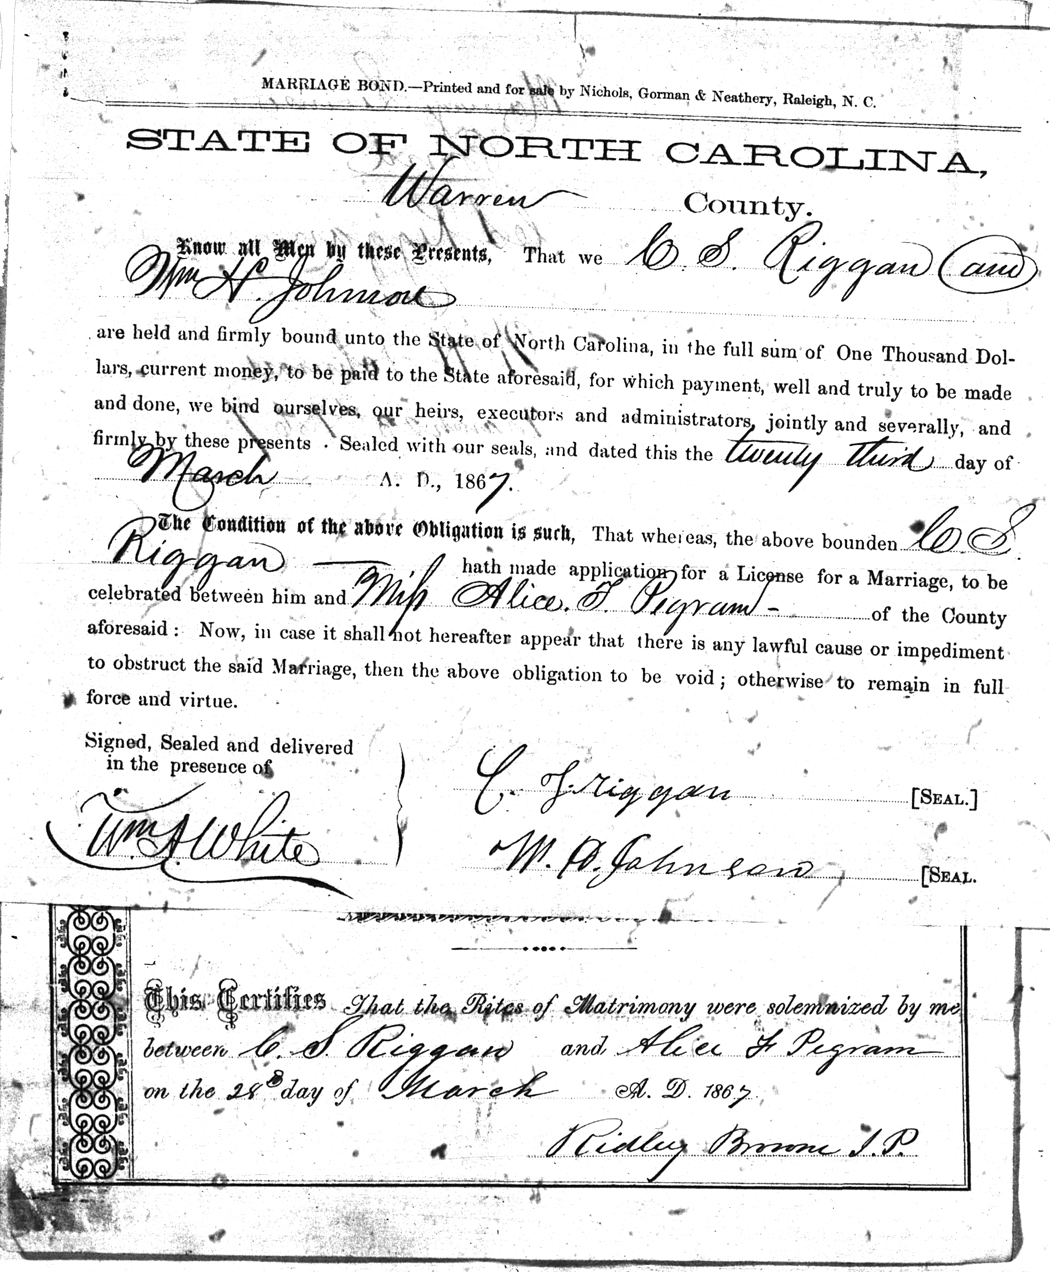 MARRIAGE BOND.—Printed and for sale by Nichols, Gorman & Neathery, Raleigh, N. C.
STATE OF NORTH CAROLINA,
Warren County.
Know all Men by these Presents, That we C. S. Riggan and
Wm H. Johnson
are held and firmly bound unto the State of North Carolina, in the full sum of One Thousand Dol-
lars, current money, to be paid to the State aforesaid, for which payment, well and truly to be made
and done, we bind ourselves, our heirs, executors and administrators, jointly and severally, and
firmly by these presents. Sealed with our seals, and dated this the twenty third day of
March A. D., 1867.
The Condition of the above Obligation is such, That whereas, the above bounden C S
Riggan hath made application for a License for a Marriage, to be
celebrated between him and Miss Alice. F. Pegram - of the County
aforesaid: Now, in case it shall not hereafter appear that there is any lawful cause or impediment
to obstruct the said Marriage, then the above obligation to be void; otherwise to remain in full
force and virtue.
Signed, Sealed and delivered
in the presence of
C. S. Riggan [SEAL.]
Wm. A. White
W. H. Johnson [SEAL.
This Certifies That the Rites of Matrimony were solemnized by me
between C. S. Riggan and Alice F Pegram
on the 28 day of March A. D. 1867
Ridley Browne J. P.